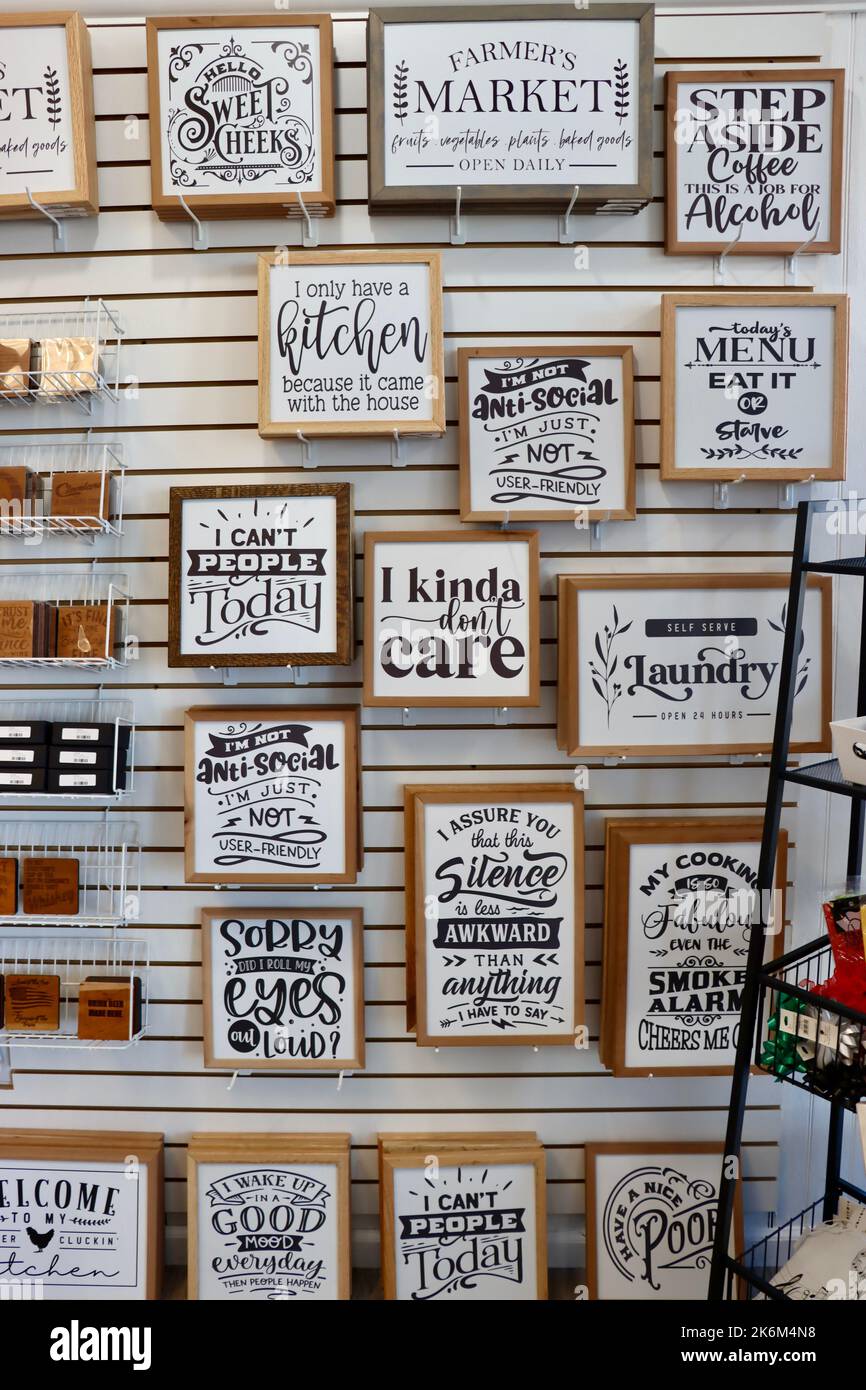 MARKET
baked goods
HELLO
Sweet
CHEEKS
FARMER'S
MARKET
fruits . vegetables . plants . baked goods
OPEN DAILY
STEP
ASIDE
Coffee
THIS IS A JOB FOR
Alcohol
I only have a
kitchen
because it came
with the house
I'M NOT
ANTI-SOCIAL
I'M JUST
NOT
USER-FRIENDLY
today's
MENU
EAT IT
OR
Starve
I CAN'T
PEOPLE
Today
I kinda
don't
care
SELF SERVE
Laundry
OPEN 24 HOURS
I'M NOT
ANTI-SOCIAL
I'M JUST
NOT
USER-FRIENDLY
I ASSURE YOU
that this
Silence
is less
AWKWARD
THAN
anything
I HAVE TO SAY
MY COOKING
IS SO
Fabulou
EVEN THE
SMOKE
ALARM
CHEERS ME O
SORRY
DID I ROLL MY
eyes
OUT
LOUD?
TRUST
me,
IT'S FINE
Whiskey
DRINK BEER
MADE HERE
WELCOME
TO MY
CLUCKIN'
Kitchen
I WAKE UP
IN A
GOOD
MOOD
everyday
THEN PEOPLE HAPPEN
I CAN'T
PEOPLE
Today
HAVE A NICE
POOP
a
alamy
Image ID: 2K6M4N8
www.alamy.com